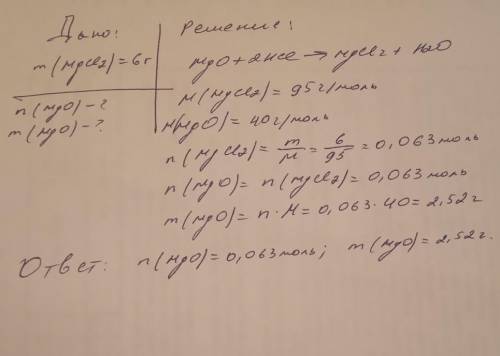 Дано:
m(MgCl2)=6г
n(MgO)-?
m(MgO)-?
Решение:
MgO+2HCl→MgCl2+H2O
M(MgCl2)=95г/моль
M(MgO)=40г/моль
n(MgCl2)=m/M=6/95=0,063моль
n(MgO)=n(MgCl2)=0,063моль
m(MgO)=n·M=0,063·40=2,52г
Ответ: n(MgO)=0,063моль; m(MgO)=2,52г.